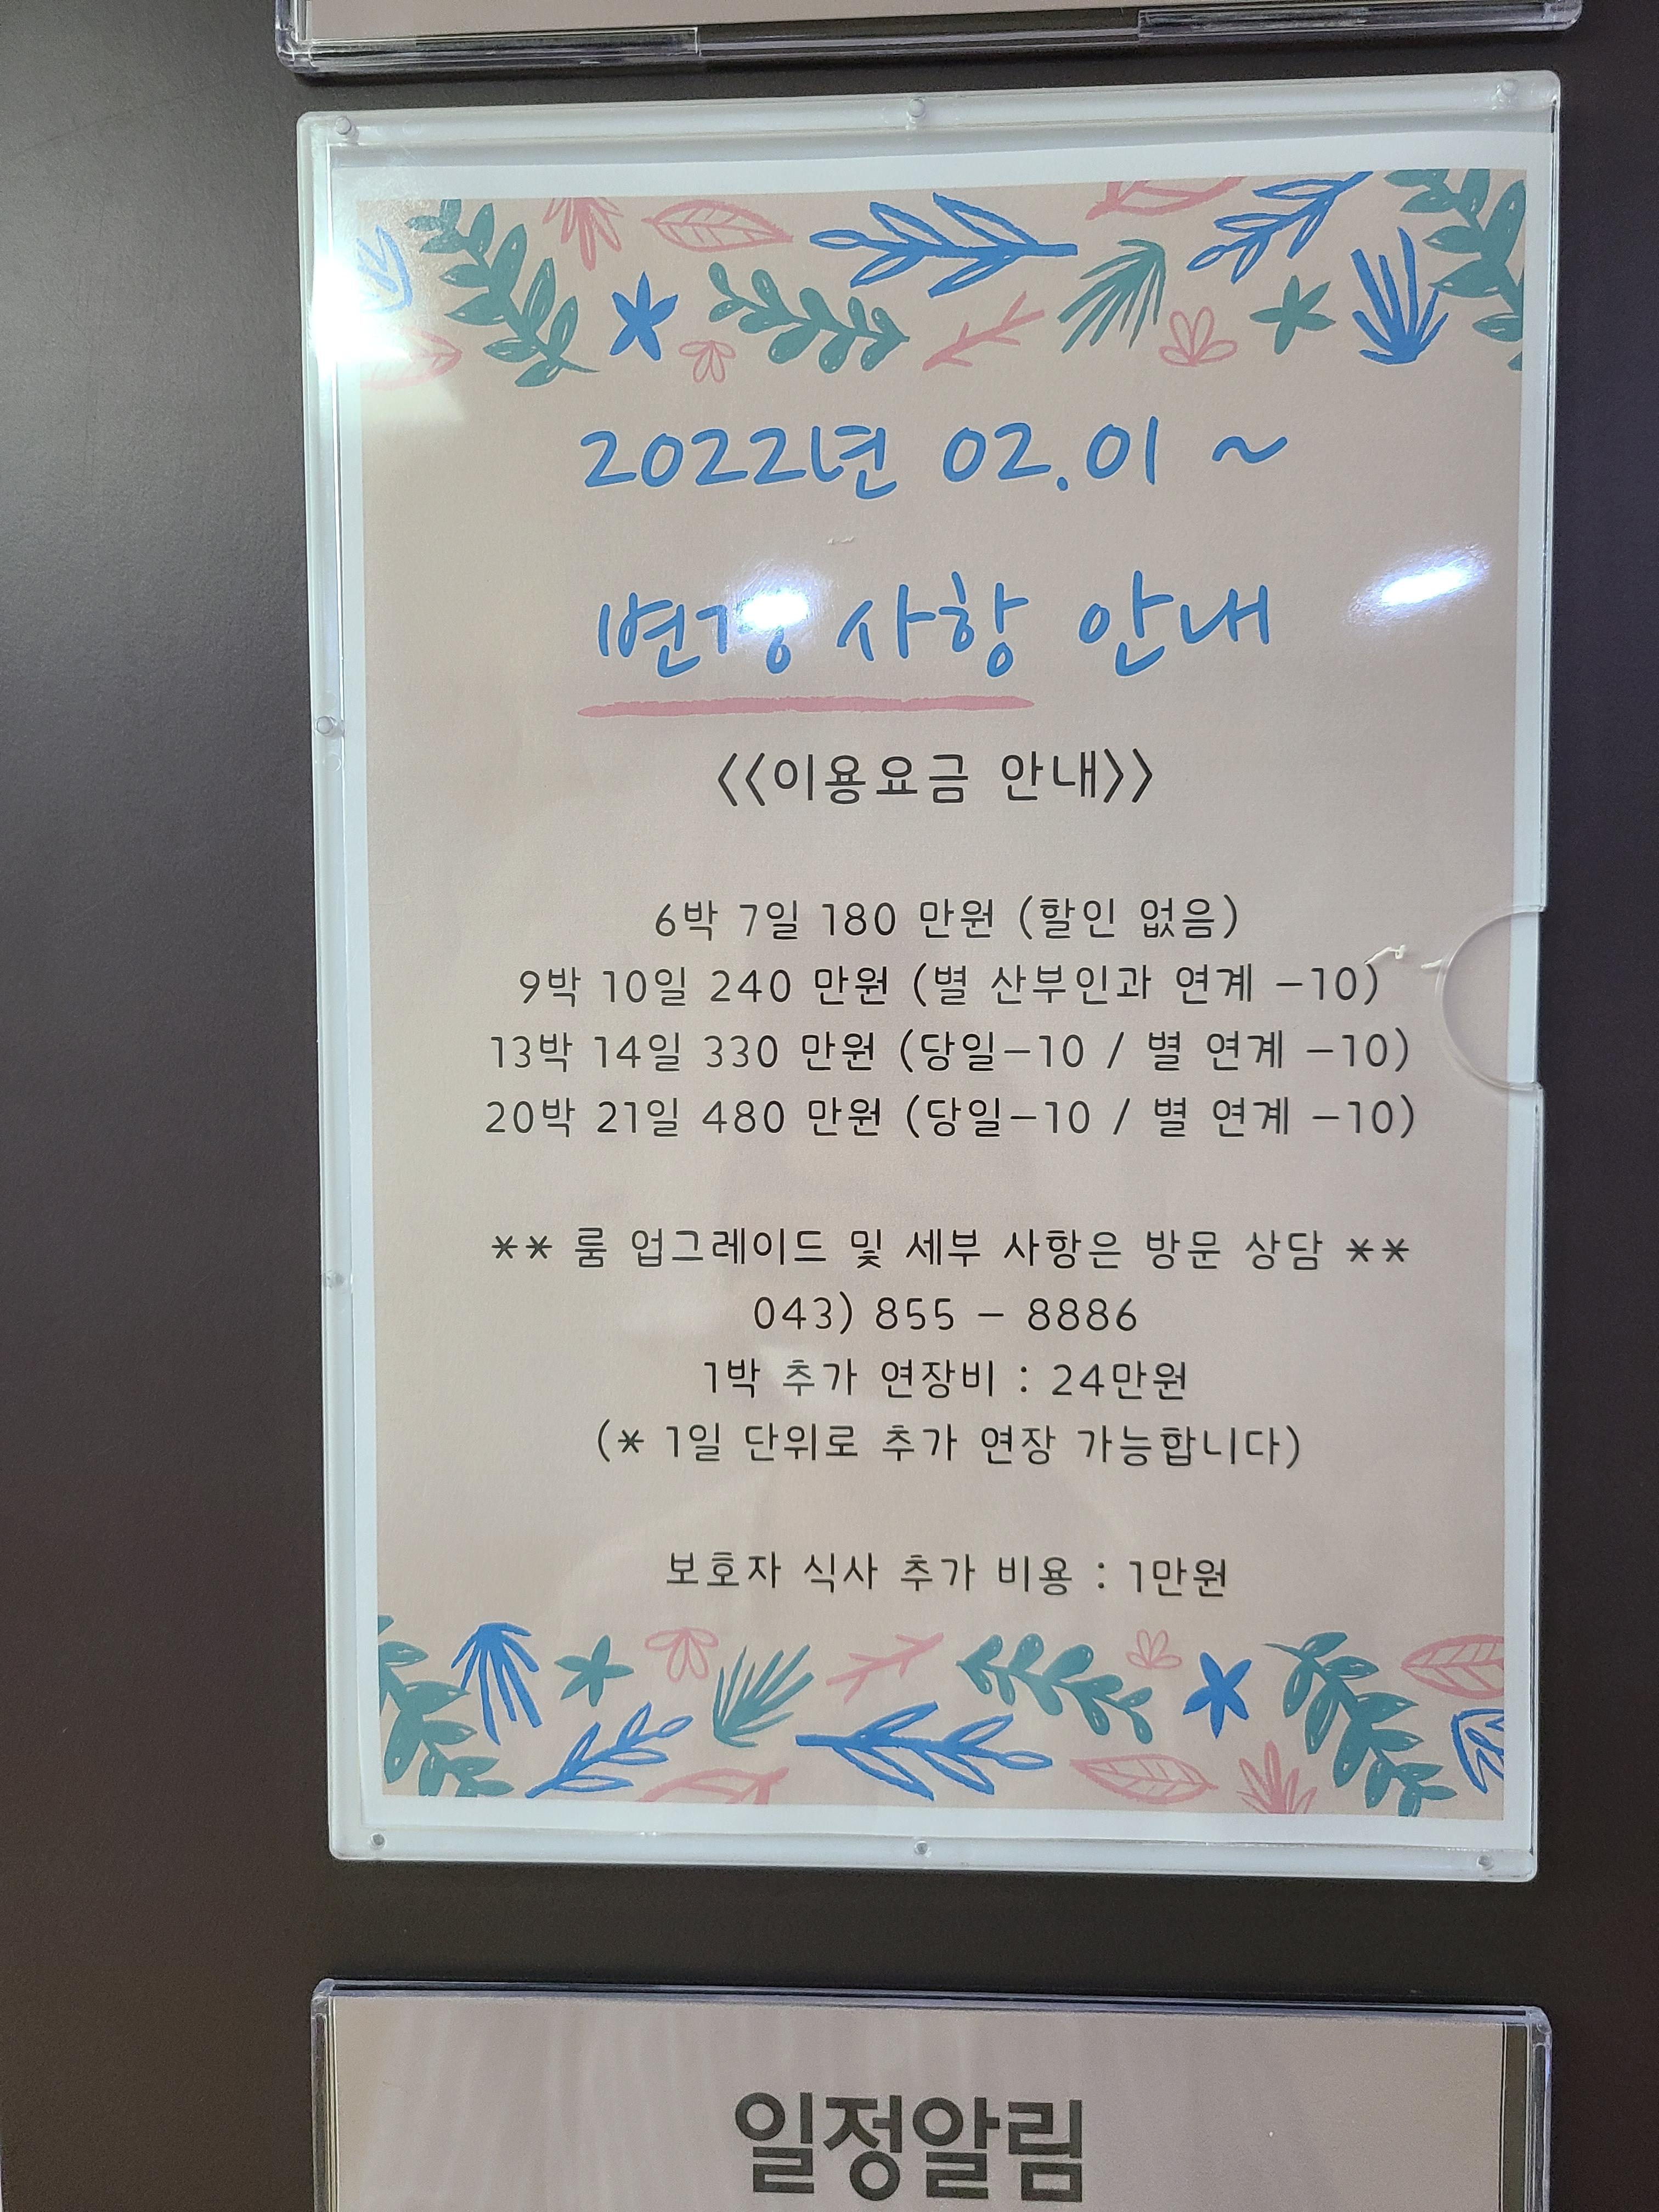 2022년 02.01 ~
변경 사항 안내
<<이용요금 안내>>
6박 7일 180 만원 (할인 없음)
9박 10일 240 만원 (별 산부인과 연계 -10)
13박 14일 330 만원 (당일-10 / 별 연계 -10)
20박 21일 480 만원 (당일-10 / 별 연계 -10)
** 룸 업그레이드 및 세부 사항은 방문 상담 **
043) 855 - 8886
1박 추가 연장비 : 24만원
(* 1일 단위로 추가 연장 가능합니다)
보호자 식사 추가 비용 : 1만원
일정알림